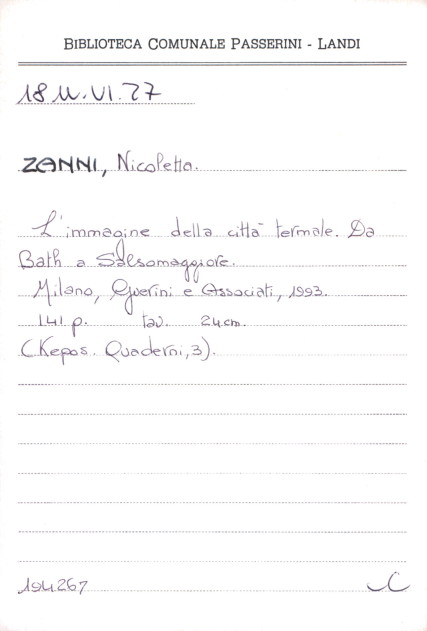 BIBLIOTECA COMUNALE PASSERINI - LANDI
18 U.VI.27
ZANNI, Nicoletta.
L'immagine della città termale. Da
Bath a Salsomaggiore.
Milano, Guerini e Associati, 1993.
141 p. tav. 24 cm.
(Kepos. Quaderni, 3).
194267 C